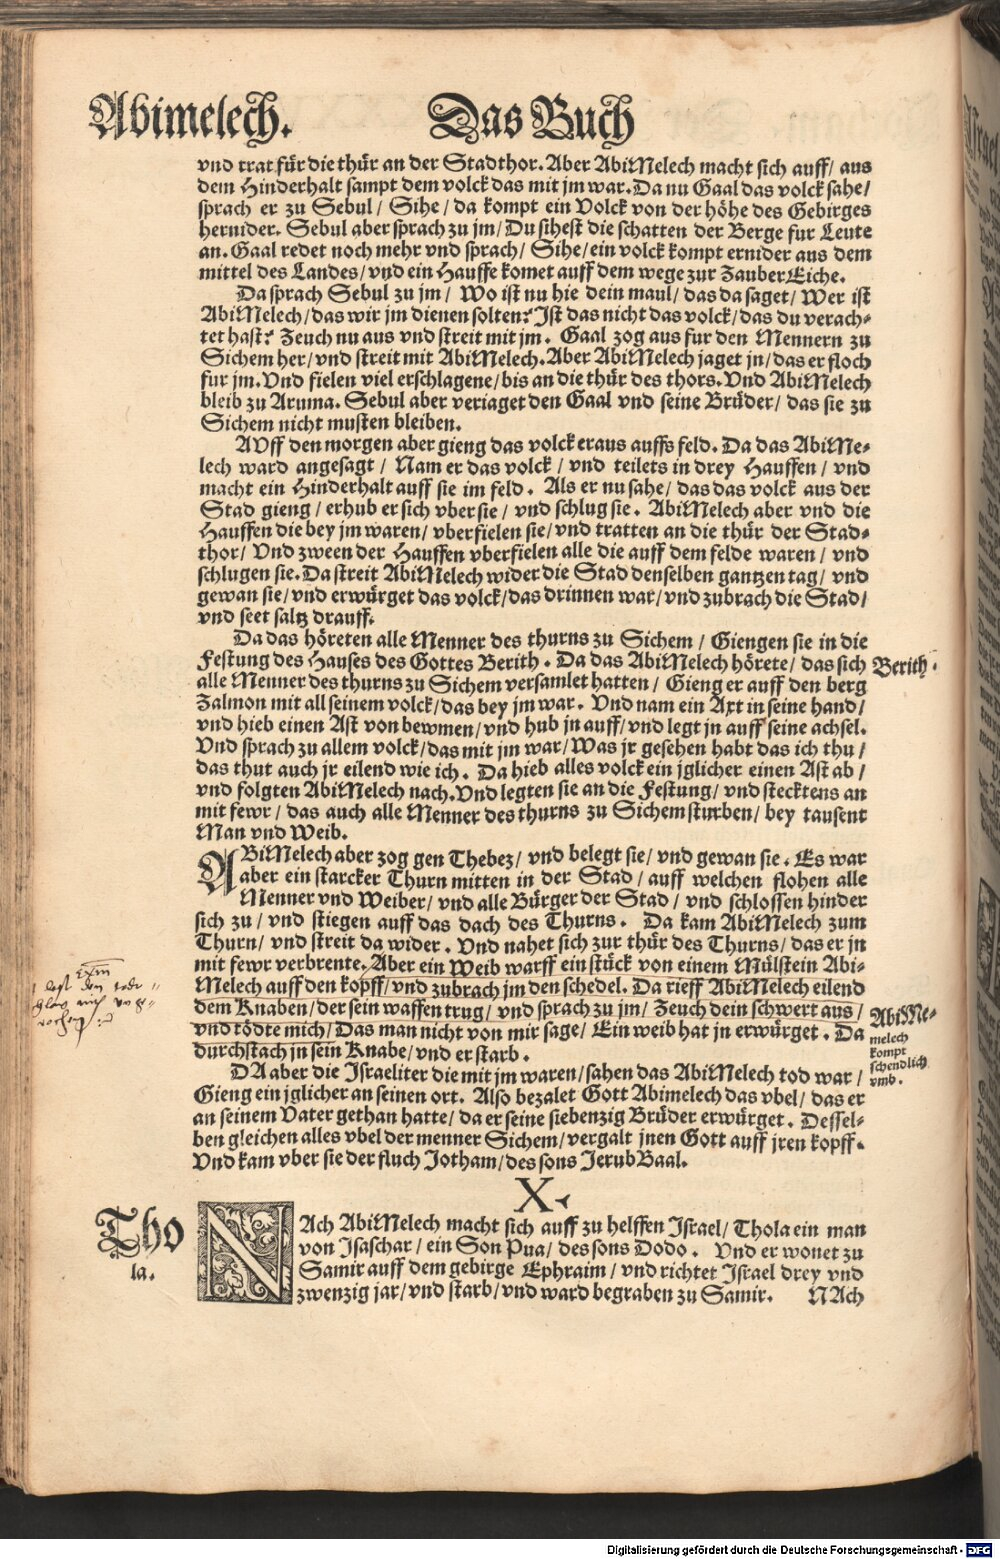 Abimelech. Das Buch
vnd trat für die thür an der Stadthor. Aber AbiMelech macht sich auff/ aus
dem Hinderhalt sampt dem volck das mit jm war. Da nu Gaal das volck sahe/
sprach er zu Sebul/ Sihe/ da kompt ein Volck von der höhe des Gebirges
hernider. Sebul aber sprach zu jm/ Du sihest die schatten der Berge fur Leute
an. Gaal redet noch mehr vnd sprach/ Sihe/ ein volck kompt ernider aus dem
mittel des Landes/ vnd ein Hauffe komet auff dem wege zur ZauberEiche.
Da sprach Sebul zu jm/ Wo ist nu hie dein maul/ das da saget/ Wer ist
AbiMelech/ das wir jm dienen solten? Ist das nicht das volck/ das du verach-
tet hast? Zeuch nu aus vnd streit mit jm. Gaal zog aus fur den Mennern zu
Sichem her/ vnd streit mit AbiMelech. Aber AbiMelech jaget jn/ das er floch
fur jm. Vnd fielen viel erschlagene/ bis an die thür des thors. Vnd AbiMelech
bleib zu Aruma. Sebul aber veriaget den Gaal vnd seine Brüder/ das sie zu
Sichem nicht musten bleiben.
AVff den morgen aber gieng das volck eraus auffs feld. Da das AbiMe-
lech ward angesagt/ Nam er das volck/ vnd teilets in drey Hauffen/ vnd
macht ein Hinderhalt auff sie im feld. Als er nu sahe/ das das volck aus der
Stad gieng/ erhub er sich vber sie/ vnd schlug sie. AbiMelech aber vnd die
Hauffen die bey jm waren/ vberfielen sie/ vnd tratten an die thür der Stad-
thor/ Vnd zween der Hauffen vberfielen alle die auff dem felde waren/ vnd
schlugen sie. Da streit AbiMelech wider die Stad denselben gantzen tag/ vnd
gewan sie/ vnd erwürget das volck/ das drinnen war/ vnd zubrach die Stad/
vnd seet saltz drauff.
Da das höreten alle Menner des thurns zu Sichem/ Giengen sie in die
Festung des Hauses des Gottes Berith. Da das AbiMelech hörete/ das sich
Berith.
alle Menner des thurns zu Sichem versamlet hatten/ Gieng er auff den berg
Zalmon mit all seinem volck/ das bey jm war. Vnd nam ein Axt in seine hand/
vnd hieb einen Ast von bewmen/ vnd hub jn auff/ vnd legt jn auff seine achsel.
Vnd sprach zu allem volck/ das mit jm war/ Was jr gesehen habt das ich thu/
das thut auch jr eilend wie ich. Da hieb alles volck ein jglicher einen Ast ab/
vnd folgten AbiMelech nach. Vnd legten sie an die Festung/ vnd stecktens an
mit fewr/ das auch alle Menner des thurns zu Sichem sturben/ bey tausent
Man vnd Weib.
ABiMelech aber zog gen Thebez/ vnd belegt sie/ vnd gewan sie. Es war
aber ein starcker Thurn mitten in der Stad/ auff welchen flohen alle
Menner vnd Weiber/ vnd alle Bürger der Stad/ vnd schlossen hinder
sich zu/ vnd stiegen auff das dach des Thurns. Da kam AbiMelech zum
Thurn/ vnd streit da wider. Vnd nahet sich zur thür des Thurns/ das er jn
mit fewr verbrente. Aber ein Weib warff ein stück von einem Mülstein Abi-
Melech auff den kopff/ vnd zubrach jm den schedel. Da rieff AbiMelech eilend
dem Knaben/ der sein waffen trug/ vnd sprach zu jm/ Zeuch dein schwert aus/
vnd tödte mich/ Das man nicht von mir sage/ Ein weib hat jn erwürget. Da
durchstach jn sein Knabe/ vnd er starb.
AbiMe-
melech
kompt
schendlich
vmb.
DA aber die Israeliter die mit jm waren/ sahen das AbiMelech tod war/
Gieng ein jglicher an seinen ort. Also bezalet Gott Abimelech das vbel/ das er
an seinem Vater gethan hatte/ da er seine siebenzig Brüder erwürget. Dessel-
ben gleichen alles vbel der menner Sichem/ vergalt jnen Gott auff jren kopff.
Vnd kam vber sie der fluch Jotham/ des sons JerubBaal.
X.
Tho
la.
NAch AbiMelech macht sich auff zu helffen Israel/ Thola ein man
von Isaschar/ ein Son Pua/ des sons Dodo. Vnd er wonet zu
Samir auff dem gebirge Ephraim/ vnd richtet Israel drey vnd
zwenzig jar/ vnd starb/ vnd ward begraben zu Samir. NAch
Digitalisierung gefördert durch die Deutsche Forschungsgemeinschaft - DFG